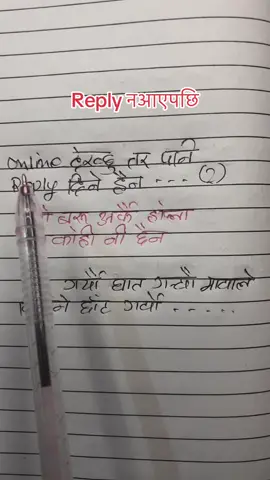 Reply नआएपछि
online देख्छु तर पनि
Reply दिने हैन --- (२)
बरू अर्कै होला
कोही नी छैन
गर्यौ घात गर्यौ मायाले
ने छाँट गर्यो -----